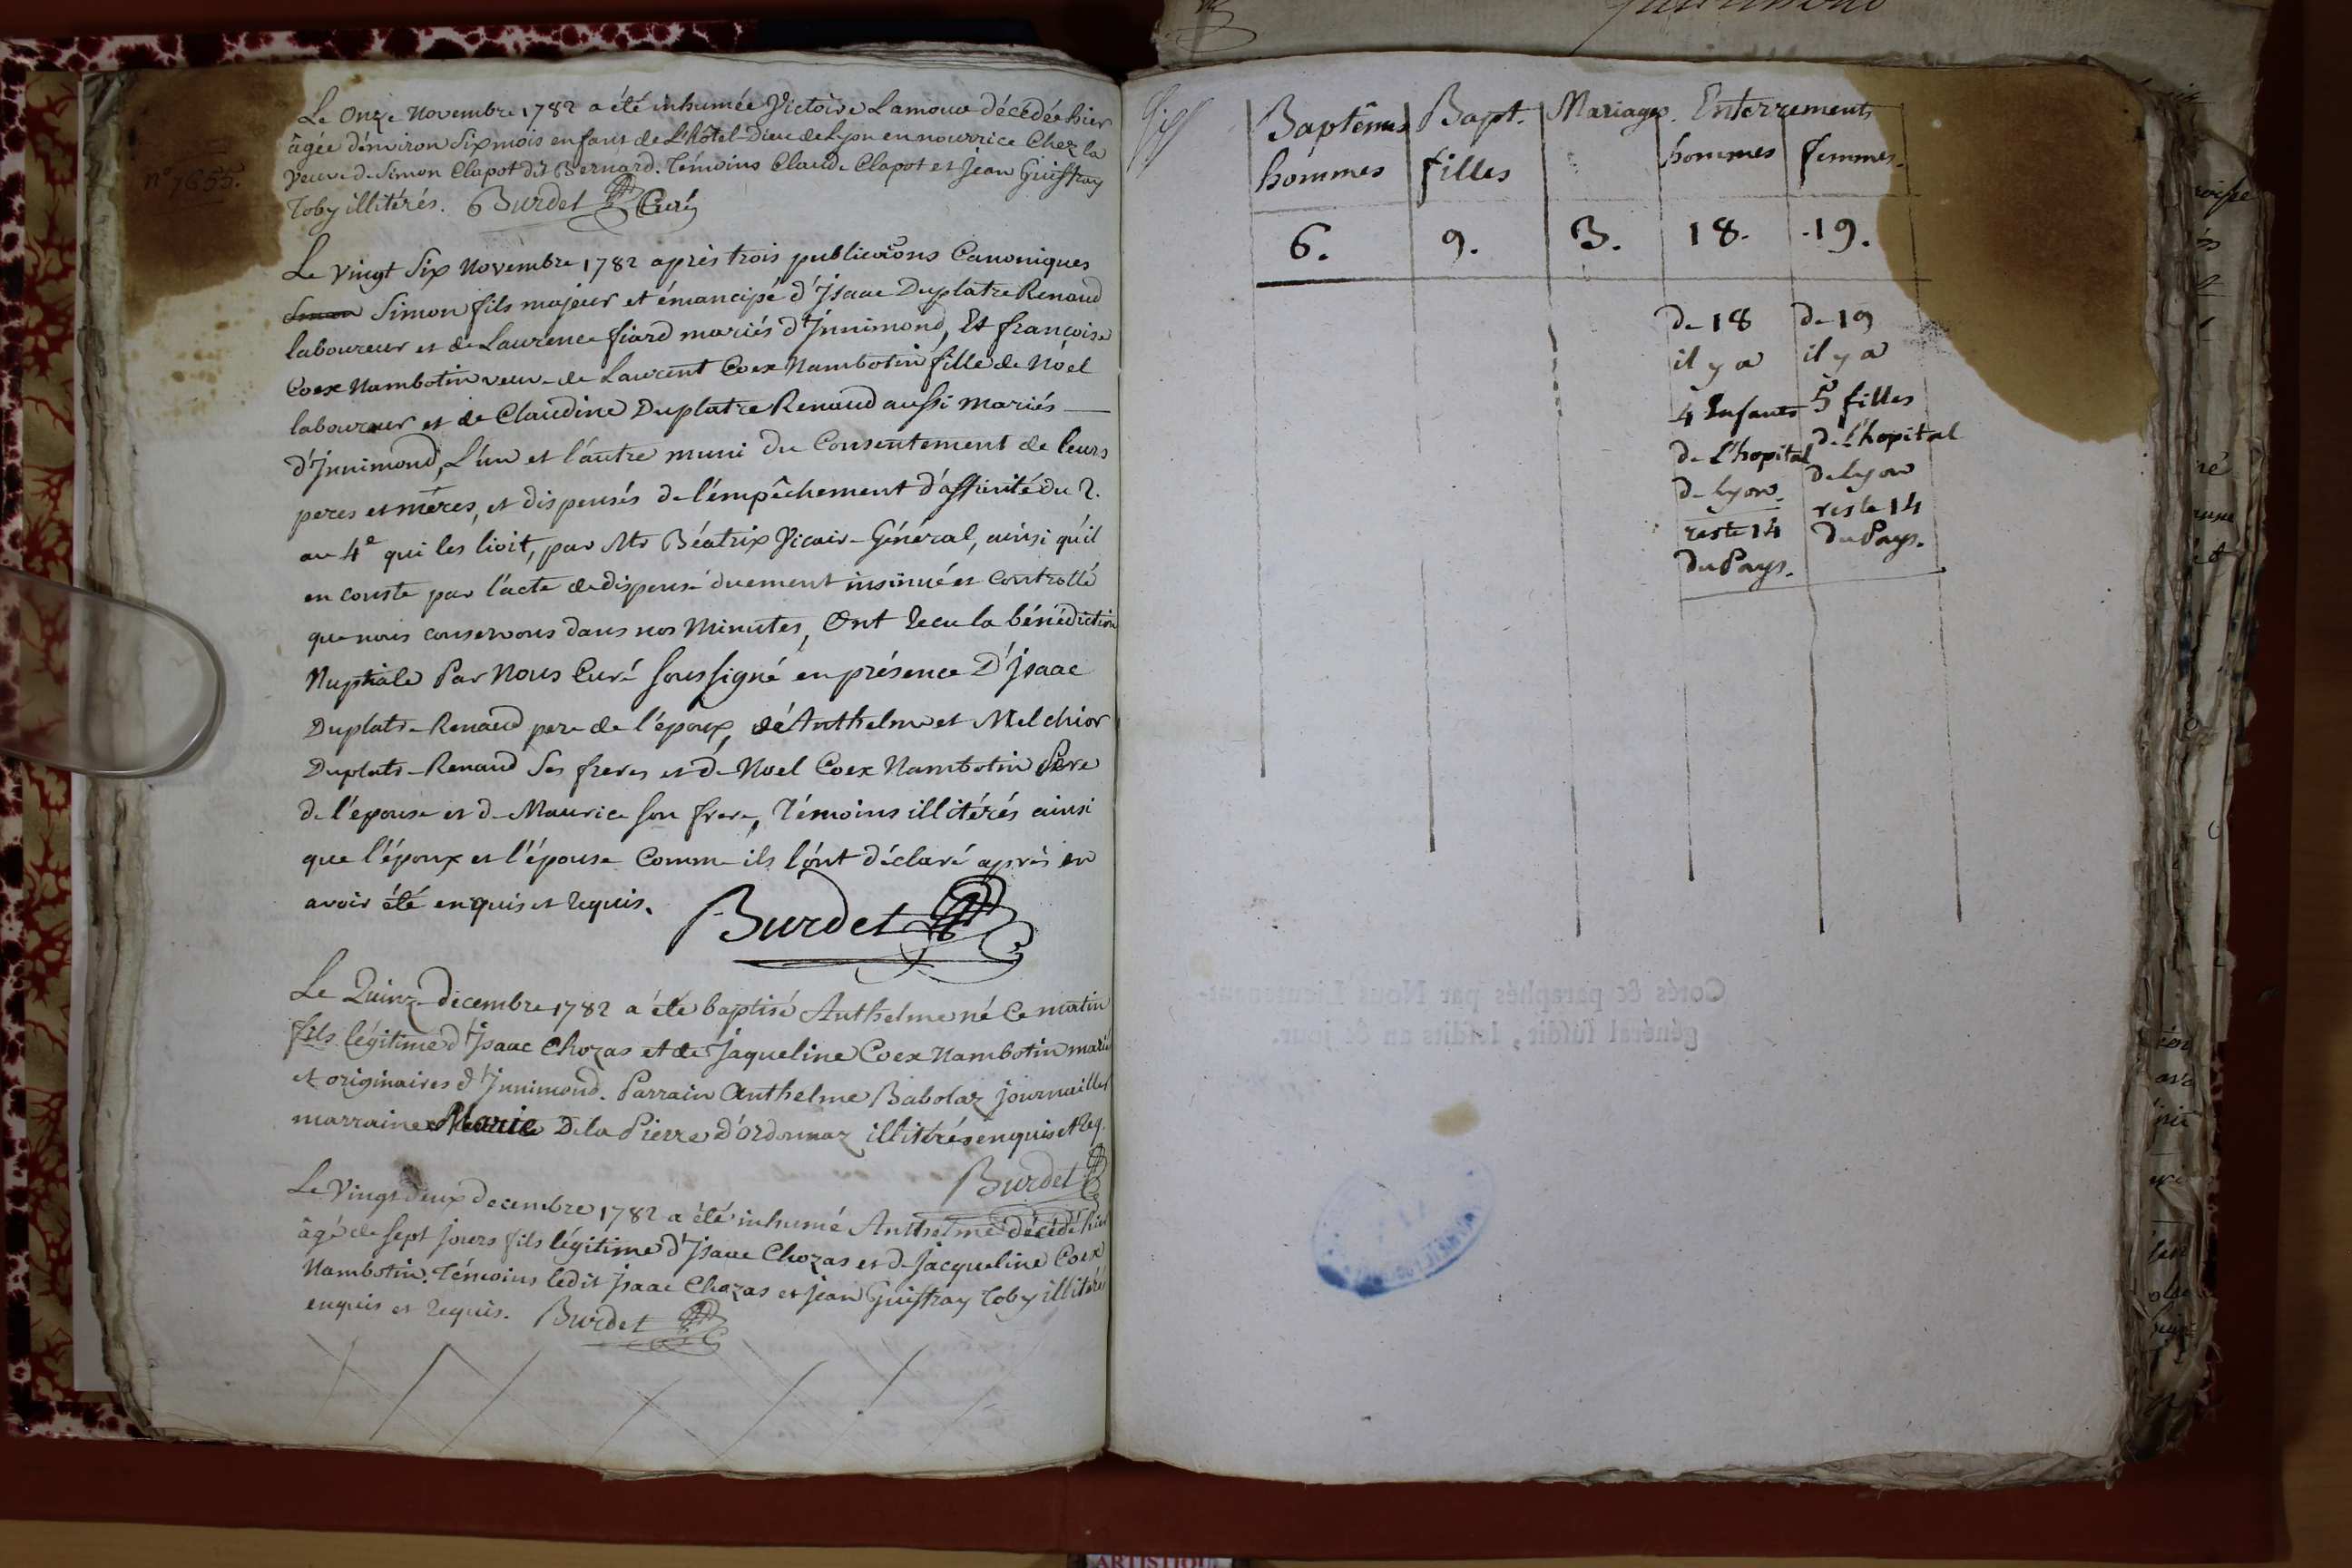 Le Onze Novembre 1782 a été inhumée Victoire Lamoux décédée hier
âgée d'environ Six mois enfant de L'hôtel-Dieu de Lyon en nourrice Chez la
veuve de Simon Clapot dit Bernard. Témoins Claude Clapot et Jean Guiffray
Toby illitérés. Burdet Curé
n° 7655.
Le vingt Six Novembre 1782 après trois publications Canoniques
Simon Simon fils majeur et émancipé d'Isaac Duplatre Renaud
laboureur et de Laurence fiard mariés d'Innimond, Et françoise
Coex Nambotin veuve de Laurent Coex Nambotin fille de Nöel
laboureur et de Claudine Duplatre Renaud aussi mariés
d'Innimond, L'un et l'autre muni du Consentement de leurs
peres et mères, et dispensés de l'émpêchement d'affinité du 2.
au 4e qui les lioit, par Mr Béatrix Vicaire-Général, ainsi qu'il
en conste par l'acte de dispense duement insinué et Controllé
que nous conservons dans nos Minutes, Ont Recu la bénédiction
Nuptiale Par Nous Curé Soussigné en présence D'Isaac
Duplatre-Renaud pere de l'époux, dé Anthelme et Melchior
Duplatre-Renaud Ses freres et de Noel Coex Nambotin Pere
de l'épouse et de Maurice son frere, Témoins illitérés ainsi
que l'époux et l'épouse Comme ils l'ont déclaré après en
avoir été enquis et Requis.
Burdet
Le Quinze decembre 1782 a été baptisé Anthelme né Ce matin
fils légitime d'Isaac Chozas et de Jaqueline Coex Nambotin mariés
et originaires d'Innimond. Parrain Anthelme Babolaz journaillier
marraine Marie De la Pierre d'Ordonnaz illitérés enquis et Req.
Burdet
Le Vingt deux decembre 1782 a été inhumé Anthelme décédé hier
âgé de Sept jours fils légitime d'Isaac Chozas et de Jacqueline Coex
Nambotin. Témoins ledit Isaac Chozas et Jean Guiffray Toby illitérés
enquis et Requis. Burdet
Baptêmes Bapt. Mariages. Enterrements
hommes filles hommes femmes.
6. 9. 3. 18. 19.
de 18 de 19
il y a il y a
4 Enfants 5 filles
de L'hopital de L'hopital
de Lyon. de Lyon
reste 14 reste 14
du Pays. du Pays.
Cotés & paraphés par Nous Lieutenant-
général susdit, lesdits an & jour.